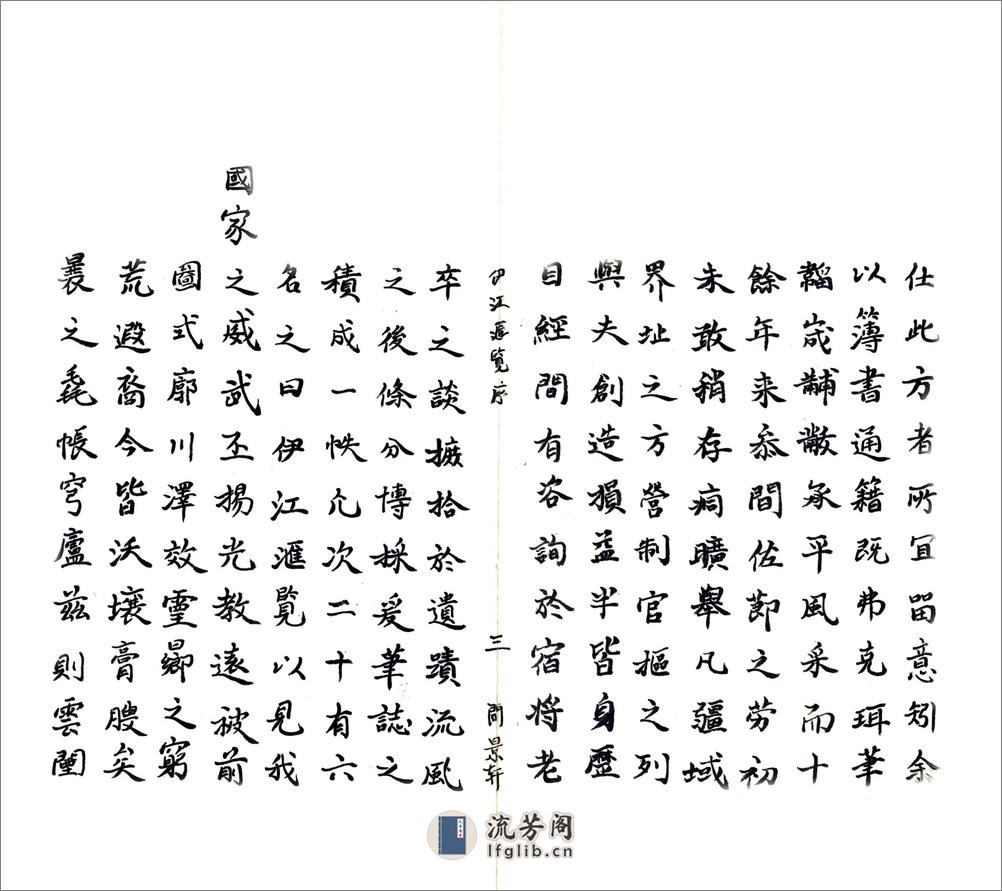 仕此方者所宜畱意矧余
以簿書通籍既弗克珥筆
韜嵗黼黻承平風采而十
餘年来忝間佐莭之劳初
未敢稍存痌曠舉凡疆域
界址之方營制官樞之列
與夫創造損益半皆身歷
目經間有咨詢於宿將老
伊江滙覧序
三
問景轩
卒之談摭拾於遺蹟流風
之後條分博採爰筆誌之
積成一帙凢次二十有六
名之曰伊江滙覧以見我
國家之威武丕揚光教遠被前
圖式廓川澤效靈鄉之窮
荒遐裔今皆沃壤膏腴矣
曩之毳帳穹廬兹則雲闉
流芳阁
lfglib.cn